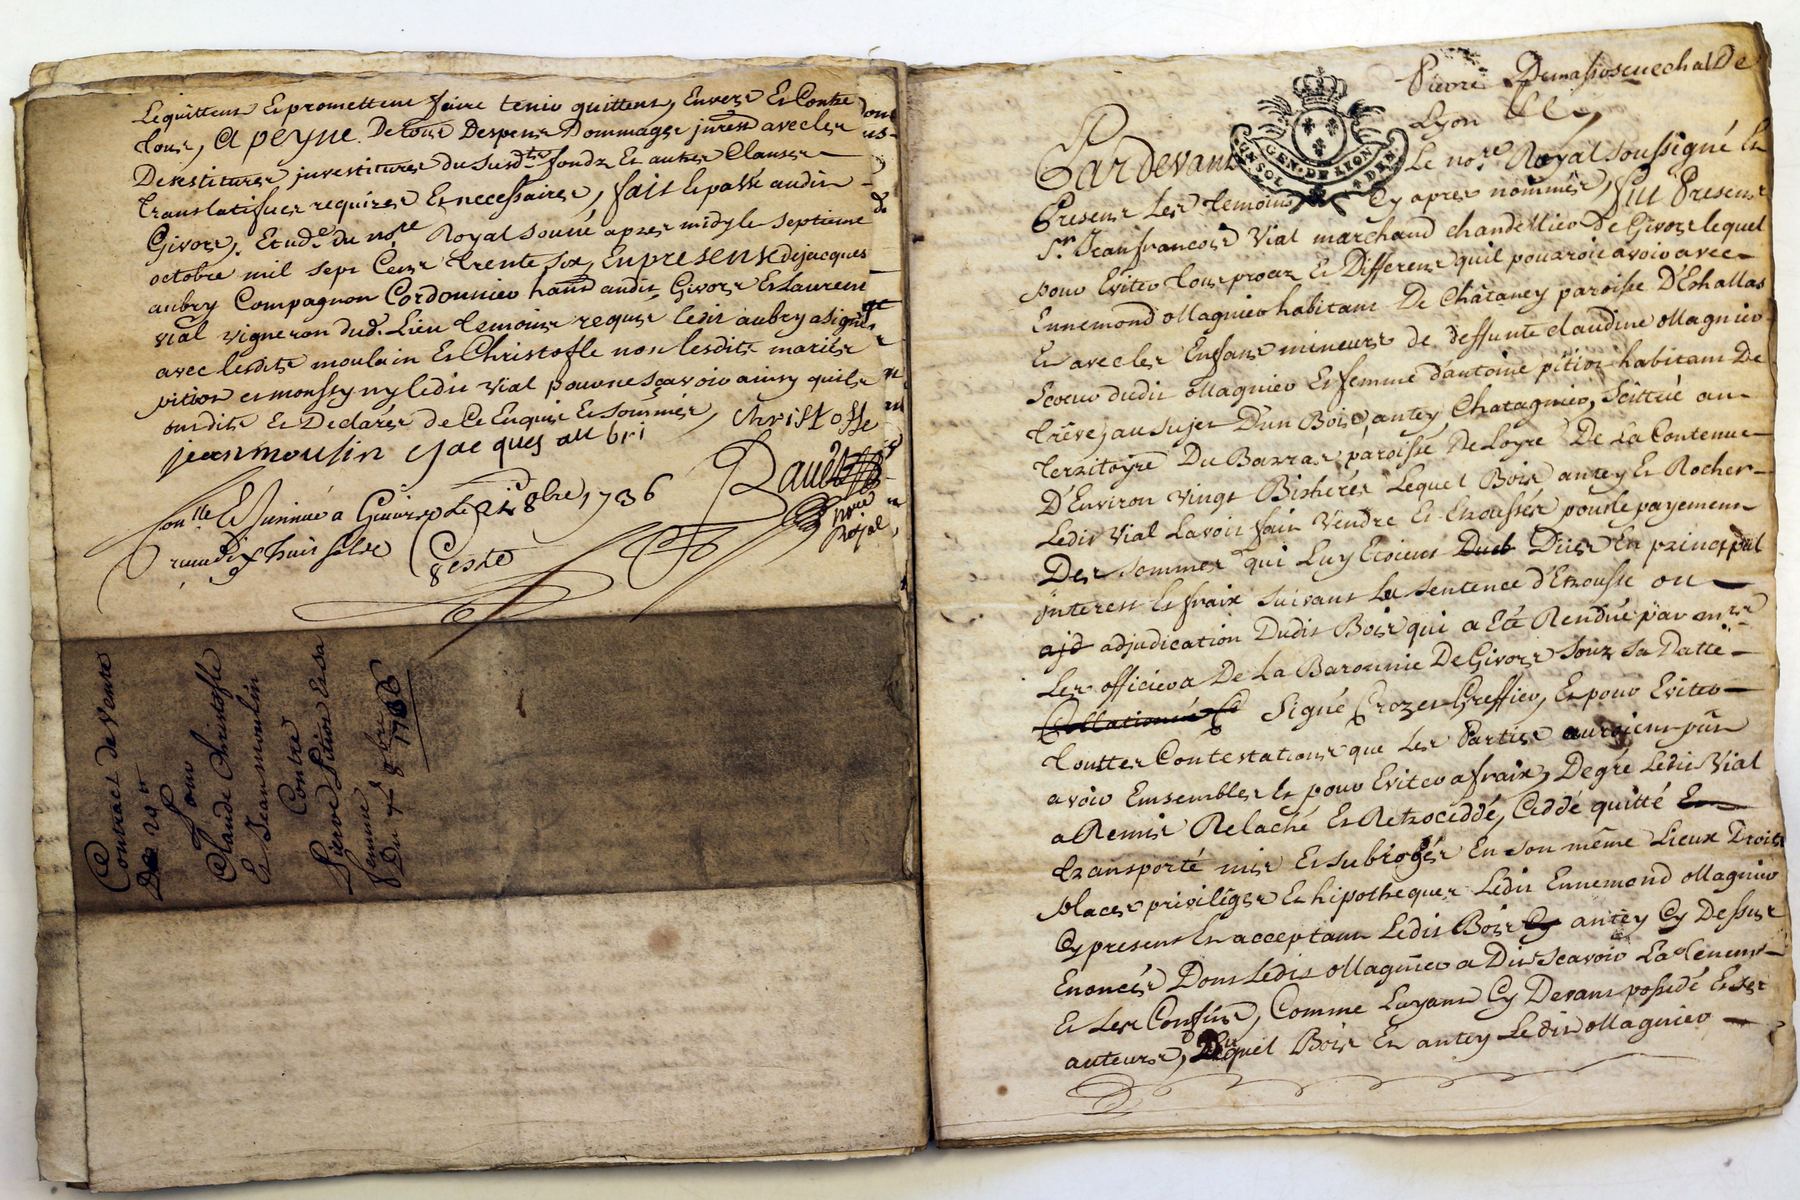 Lequittent et promettent faire tenir quittent, Envers Et Contre
tous, A peyne De tous Despens Dommages jnrest avec les
Devestitures jnvestitures du susd. fondz Et autres Clauses
translatifves requises Et necessaires, fait Et passé audit
Givors, Etude du nore Royal souné apres midy le septieme
octobre mil sept Cens trente six, En presense de jacques
aubry Compagnon Cordonnier hant audit Givors Et Laurent
vial vigneron dud. Lieu temoins requis ledit aubry a signé
avec lesdits moulain Et Christofle non lesdits mariés
pition et ny ledit vial pour ne sçavoir ainsy quils
ont dits Et Declarés de Ce Enquis Et sommés, Christofle
jean moulin jacques aubri
Conlle Et jnsinué a Givors le 8bre 1736
dix huit sols
Royal
Contract de Vente
De
Pour
Claude Christofle
Et Jean moulin
Contre
Pierre Pition Et sa
femme
Du 7e 8bre
1736
Pierre Demasso senechal De
Lyon &c,
GEN. DE LION
Par devant Le nore Royal soussigné Et
Presens Les temoins Cy apres nommés, fut Present
Sr. Jean francois Vial marchand chandellier De Givors lequel
pour Eviter tous procez Et Differens quil pourroit avoir avec
Ennemond Magnier habitant De Châtaney paroisse D'Echallas
Et avec les Enfans mineurs de deffunte claudine Magnier
Soeur dudit Magnier Et femme d'antoine pition habitant De
Trêve, au sujet D'un Bois, antey, Chatagnier, Scittué au
territoyre Du Barras paroisse De Loyre De La Contenue
D'Environ vingt Bicherés Lequel Bois antey Et Rocher
Ledit Vial L'avoit fait Vendre Et Etroussér pour le payement
Des sommes qui Luy Etoient Dues En principal
jnterest Et fraix suivant La sentence d'Etrousse ou
ajd adjudication Dudit Bois qui a Eté Rendue par mrs
Les officiers De La Baronnie De Givors sous sa Datte
Collationnée Signé Crozet Greffier, Et pour Eviter
touttes Contestations que Les Parties auroient pûs
avoir Emsembles Et pour Eviter a fraix, De gré Ledit Vial
a Remis Relaché Et Retroceddé, Ceddé quitté Et
transporté mis Et subrogér En son même Lieux Droits
places privilêges Et hipotheques Ledit Ennemond Magnier
Cy present Et acceptant Ledit Bois Cy antey Cy Dessus
Enoncés Dont Ledit Magnier a Dit Scavoir La teneur
Et Les Confins, Comme Layant Cy Devant possedé Et ses
auteurs, Duquel Bois Et antey Ledit Magnier